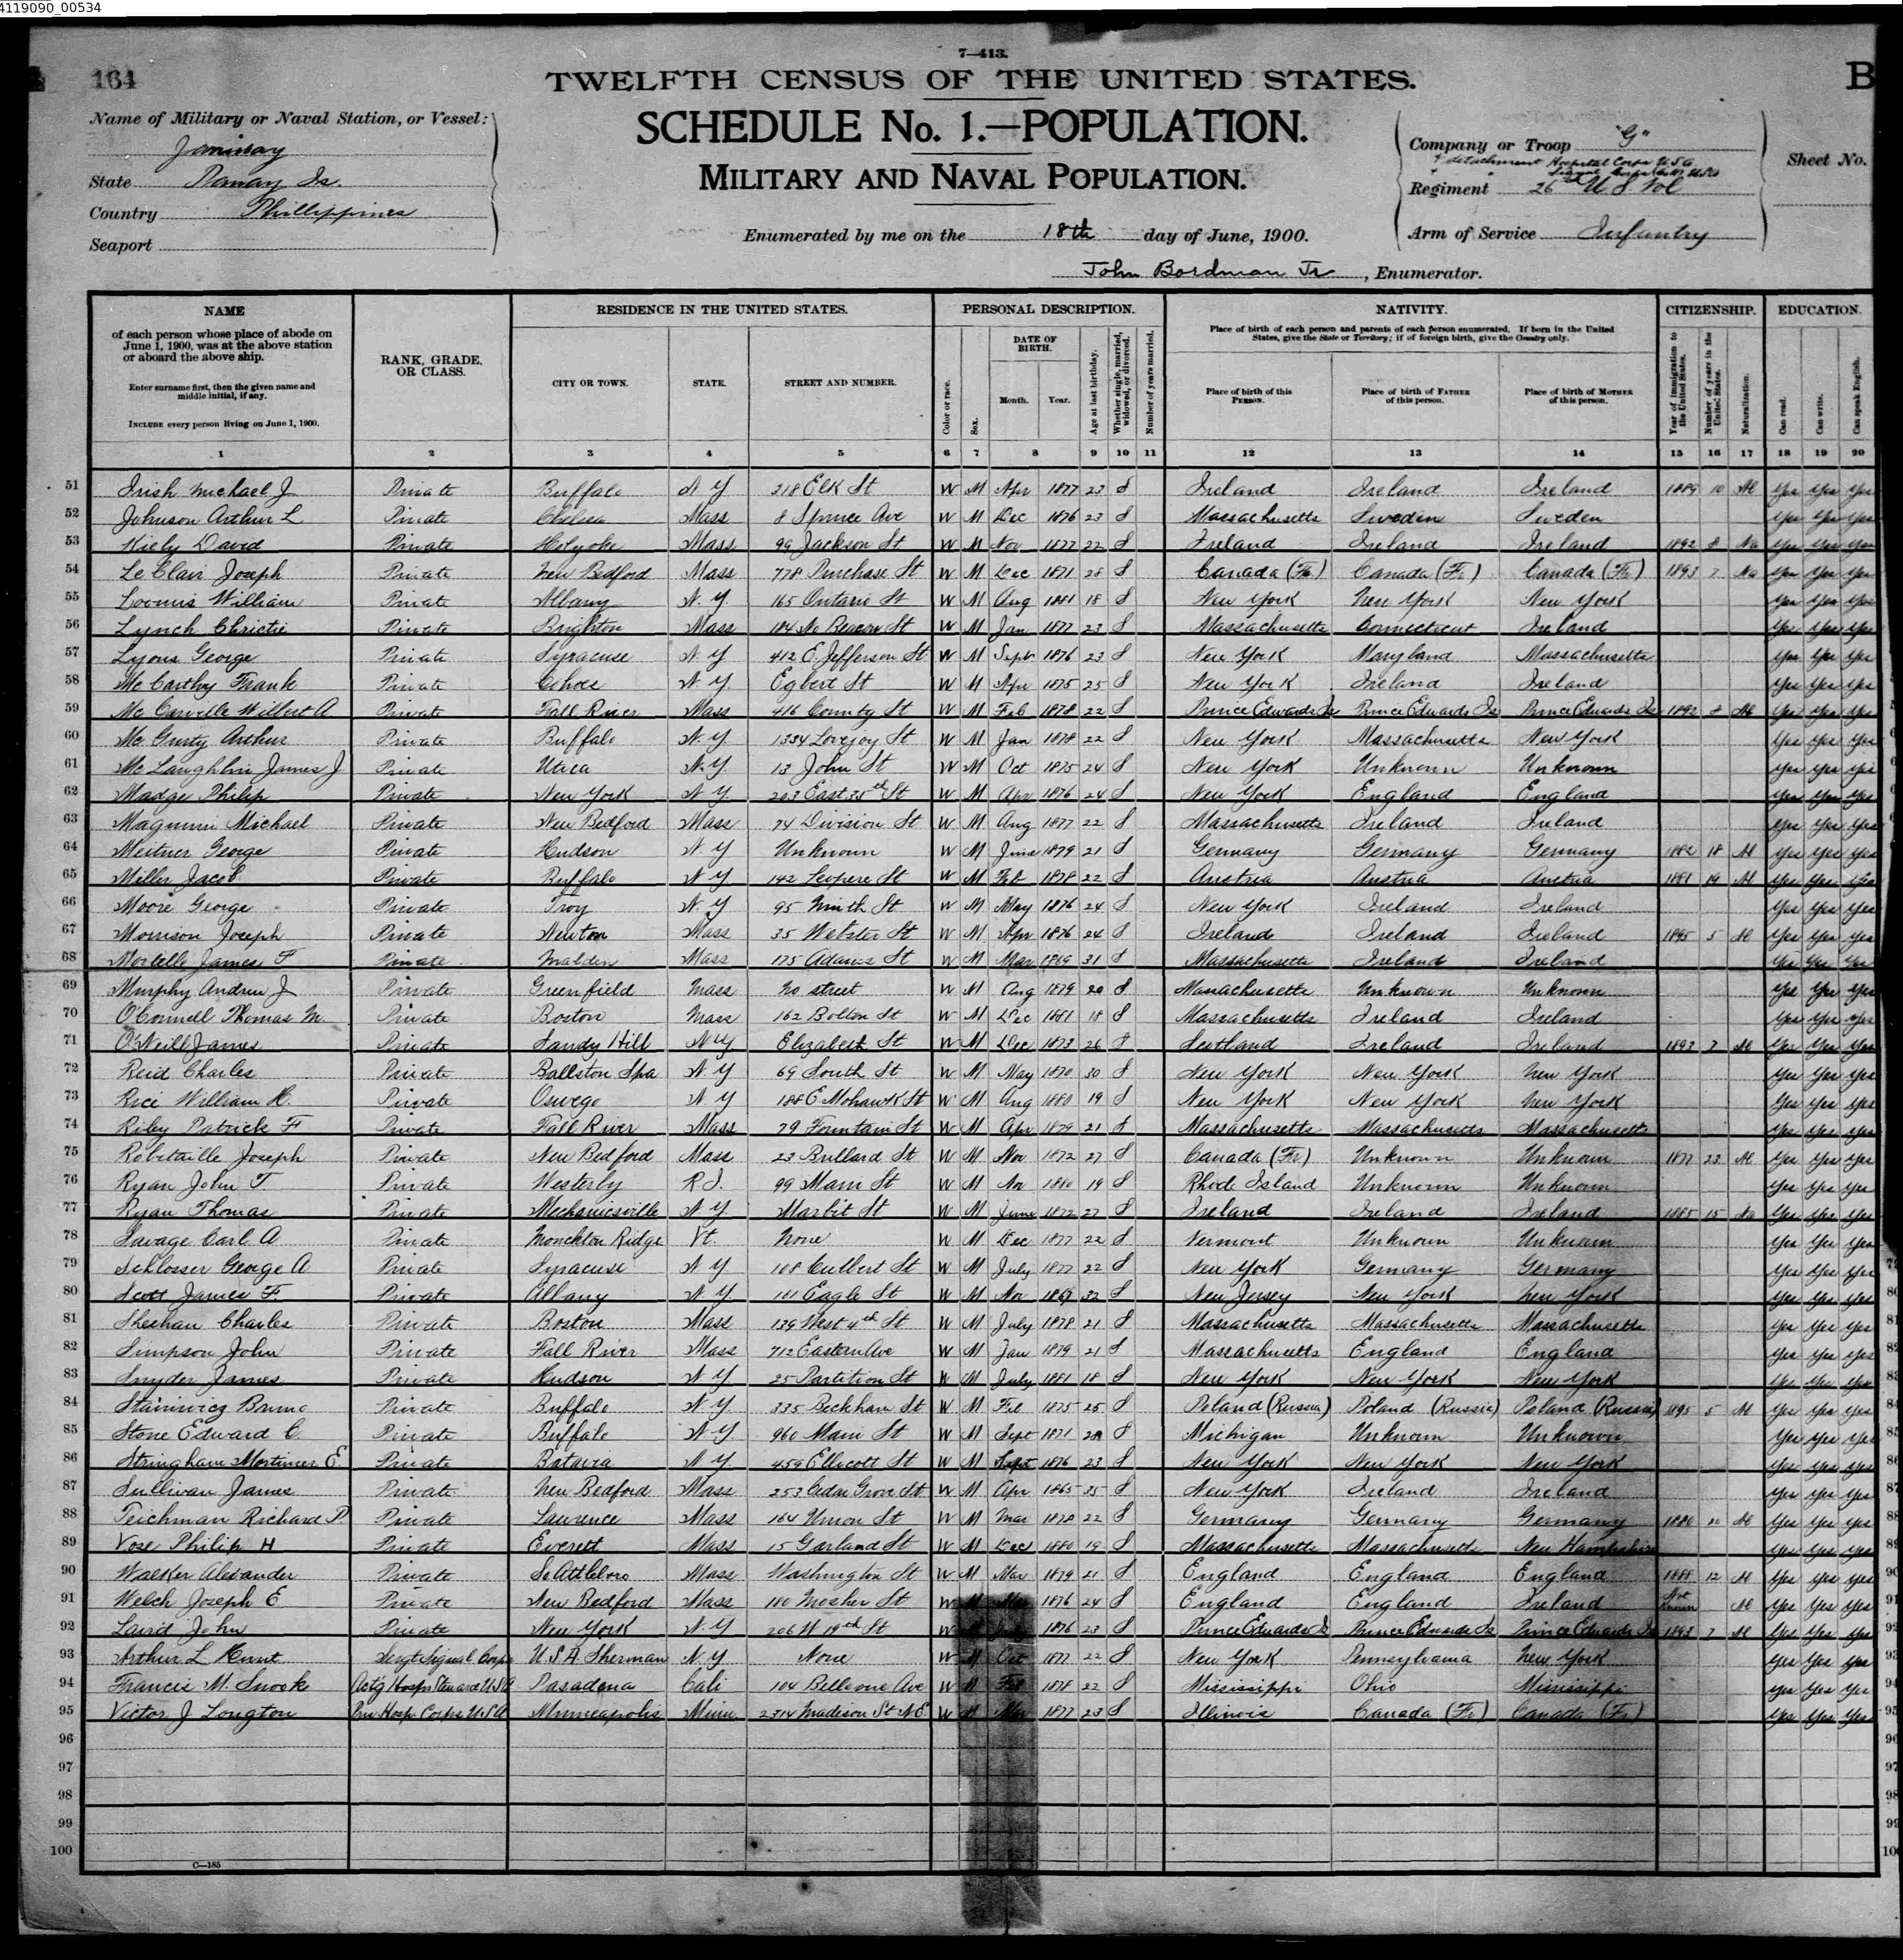 4119090_00534
7—413.
164
TWELFTH CENSUS OF THE UNITED STATES.
B
SCHEDULE No. 1.—POPULATION.
MILITARY AND NAVAL POPULATION.
Name of Military or Naval Station, or Vessel:
State Panay Is.
Country Phillippines
Seaport
Enumerated by me on the 18th day of June, 1900.
John Bordman Jr, Enumerator.
Company or Troop "G"
& detachment Hospital Corps U.S.A
Regiment 26th U S Vol
Arm of Service Infantry
Sheet No.
NAME
of each person whose place of abode on June 1, 1900, was at the above station or aboard the above ship.
Enter surname first, then the given name and middle initial, if any.
INCLUDE every person living on June 1, 1900.
RANK, GRADE, OR CLASS.
RESIDENCE IN THE UNITED STATES.
CITY OR TOWN. STATE. STREET AND NUMBER.
PERSONAL DESCRIPTION.
Color or race. Sex. DATE OF BIRTH. Month. Year. Age at last birthday. Whether single, married, widowed, or divorced. Number of years married.
NATIVITY.
Place of birth of each person and parents of each person enumerated. If born in the United States, give the State or Territory; if of foreign birth, give the Country only.
Place of birth of this PERSON. Place of birth of FATHER of this person. Place of birth of MOTHER of this person.
CITIZENSHIP.
Year of immigration to the United States. Number of years in the United States. Naturalization.
EDUCATION.
Can read. Can write. Can speak English.
1 2 3 4 5 6 7 8 9 10 11 12 13 14 15 16 17 18 19 20
51 Irish Michael J Private Buffalo N Y 318 Elk St W M Apr 1877 23 S Ireland Ireland Ireland 1889 10 Al yes yes yes
52 Johnson Arthur L Private Chelsea Mass 8 Spruce Ave W M Dec 1876 23 S Massachusetts Sweden Sweden yes yes yes
53 Kiely David Private Holyoke Mass 99 Jackson St W M Nov 1877 22 S Ireland Ireland Ireland 1892 8 Na yes yes yes
54 Le Clair Joseph Private New Bedford Mass 778 Purchase St W M Dec 1871 28 S Canada (Fr) Canada (Fr) Canada (Fr) 1893 7 Na yes yes yes
55 Loomis William Private Albany N. Y 165 Ontario St W M Aug 1881 18 S New York New York New York yes yes yes
56 Lynch Christie Private Brighton Mass 184 No Beacon St W M Jan 1877 23 S Massachusetts Connecticut Ireland yes yes yes
57 Lyons George Private Syracuse N. Y 412 E Jefferson St W M Sept 1876 23 S New York Maryland Massachusetts yes yes yes
58 Mc Carthy Frank Private Cohoes N. Y. Egbert St W M Apr 1875 25 S New York Ireland Ireland yes yes yes
59 Mc Carville Wilbert A Private Fall River Mass 416 County St W M Feb 1878 22 S Prince Edwards Is Prince Edwards Is Prince Edwards Is 1892 8 Al yes yes yes
60 Mc Gurty Arthur Private Buffalo N. Y. 1334 Lovejoy St W M Jan 1878 22 S New York Massachusetts New York yes yes yes
61 Mc Laughlin James J Private Utica N. Y. 13 John St W M Oct 1875 24 S New York Unknown Unknown yes yes yes
62 Madge Philip Private New York N Y. 203 East 35th St W M Apr 1876 24 S New York England England yes yes yes
63 Maginnis Michael Private New Bedford Mass 74 Division St W M Aug 1877 22 S Massachusetts Ireland Ireland yes yes yes
64 Meitner George Private Hudson N Y Unknown W M June 1879 21 S Germany Germany Germany 1882 18 Al yes yes yes
65 Miller Jacob Private Buffalo N Y 142 St W M Feb 1878 22 S Austria Austria Austria 1881 19 Al yes yes yes
66 Moore George Private Troy N. Y 95 Ninth St W M May 1876 24 S New York Ireland Ireland yes yes yes
67 Morrison Joseph Private Newton Mass 35 Webster St W M Apr 1876 24 S Ireland Ireland Ireland 1895 5 Al yes yes yes
68 Mortelle James F Private Malden Mass 175 Adams St W M Mar 1869 31 S Massachusetts Ireland Ireland yes yes yes
69 Murphy Andrew J Private Greenfield Mass No street W M Aug 1879 20 S Massachusetts Unknown Unknown yes yes yes
70 O'Connell Thomas M. Private Boston Mass 162 Bolton St W M Dec 1881 18 S Massachusetts Ireland Ireland yes yes yes
71 O'Neill James Private Sandy Hill N Y Elizabeth St W M Dec 1873 26 S Scotland Ireland Ireland 1893 7 Al yes yes yes
72 Reid Charles Private Ballston Spa N. Y 69 South St W M May 1870 30 S New York New York New York yes yes yes
73 Rice William H. Private Oswego N Y 188 E Mohawk St W M Aug 1880 19 S New York New York New York yes yes yes
74 Riley Patrick F Private Fall River Mass 79 Fountain St W M Apr 1879 21 S Massachusetts Massachusetts Massachusetts yes yes yes
75 Robitaille Joseph Private New Bedford Mass 23 Bullard St W M Nov 1872 27 S Canada (Fr) Unknown Unknown 1877 23 Al yes yes yes
76 Ryan John T. Private Westerly R I. 99 Main St W M Nov 1880 19 S Rhode Island Unknown Unknown yes yes yes
77 Ryan Thomas Private Mechanicsville N Y Marbit St W M June 1872 27 S Ireland Ireland Ireland 1885 15 Na yes yes yes
78 Savage Carl A Private Monckton Ridge Vt. None W M Dec 1877 22 S Vermont Unknown Unknown yes yes yes
79 Schlosser George A Private Syracuse N Y 108 Culbert St W M July 1877 22 S New York Germany Germany yes yes yes
80 Scott James F. Private Albany N Y. 161 Eagle St W M Nov 1867 32 S New Jersey New York New York yes yes yes
81 Sheehan Charles Private Boston Mass 139 West 4th St W M July 1878 21 S Massachusetts Massachusetts Massachusetts yes yes yes
82 Simpson John Private Fall River Mass 712 Eastern Ave W M Jan 1879 21 S Massachusetts England England yes yes yes
83 Snyder James Private Hudson N Y 25 Partition St W M July 1881 18 S New York New York New York yes yes yes
84 Stainiwicz Bruno Private Buffalo N. Y. 335 Beckham St W M Feb 1875 25 S Poland (Russia) Poland (Russia) Poland (Russia) 1895 5 Al yes yes yes
85 Stone Edward C. Private Buffalo N Y. 960 Main St W M Sept 1871 28 S Michigan Unknown Unknown yes yes yes
86 Stringham Mortimer E. Private Batavia N Y. 459 Ellicott St W M Sept 1876 23 S New York New York New York yes yes yes
87 Sullivan James Private New Bedford Mass 253 Cedar Grove St W M Apr 1865 25 S New York Ireland Ireland yes yes yes
88 Teichman Richard P. Private Lawrence Mass 164 Union St W M Mar 1878 22 S Germany Germany Germany 1880 20 Al yes yes yes
89 Vose Philip H Private Everett Mass 15 Garland St W M Dec 1880 19 S Massachusetts Massachusetts New Hampshire yes yes yes
90 Walker Alexander Private So Attleboro Mass Washington St W M Mar 1879 21 S England England England 1888 12 Al yes yes yes
91 Welch Joseph E Private New Bedford Mass 180 Mosher St W M Mar 1876 24 S England England Ireland Not known Al yes yes yes
92 Laird John Private New York N. Y 206 W 19th St W M 1876 23 S Prince Edwards Is Prince Edwards Is Prince Edwards Is 1893 7 Al yes yes yes
93 Arthur L Hunt Sergt Signal Corps U S A Sherman N. Y None W M Oct 1877 22 S New York Pennsylvania New York yes yes yes
94 Francis M. Snook Act'g Hosp Steward U.S.A Pasadena Cali 104 Belleone Ave W M Feb 1878 22 S Mississippi Ohio Mississippi yes yes yes
95 Victor J Longton Priv Hosp. Corps U.S.A Minneapolis Minn 2314 Madison St N.E. W M Mar 1877 23 S Illinois Canada (Fr) Canada (Fr) yes yes yes
96
97
98
99
100
C—185